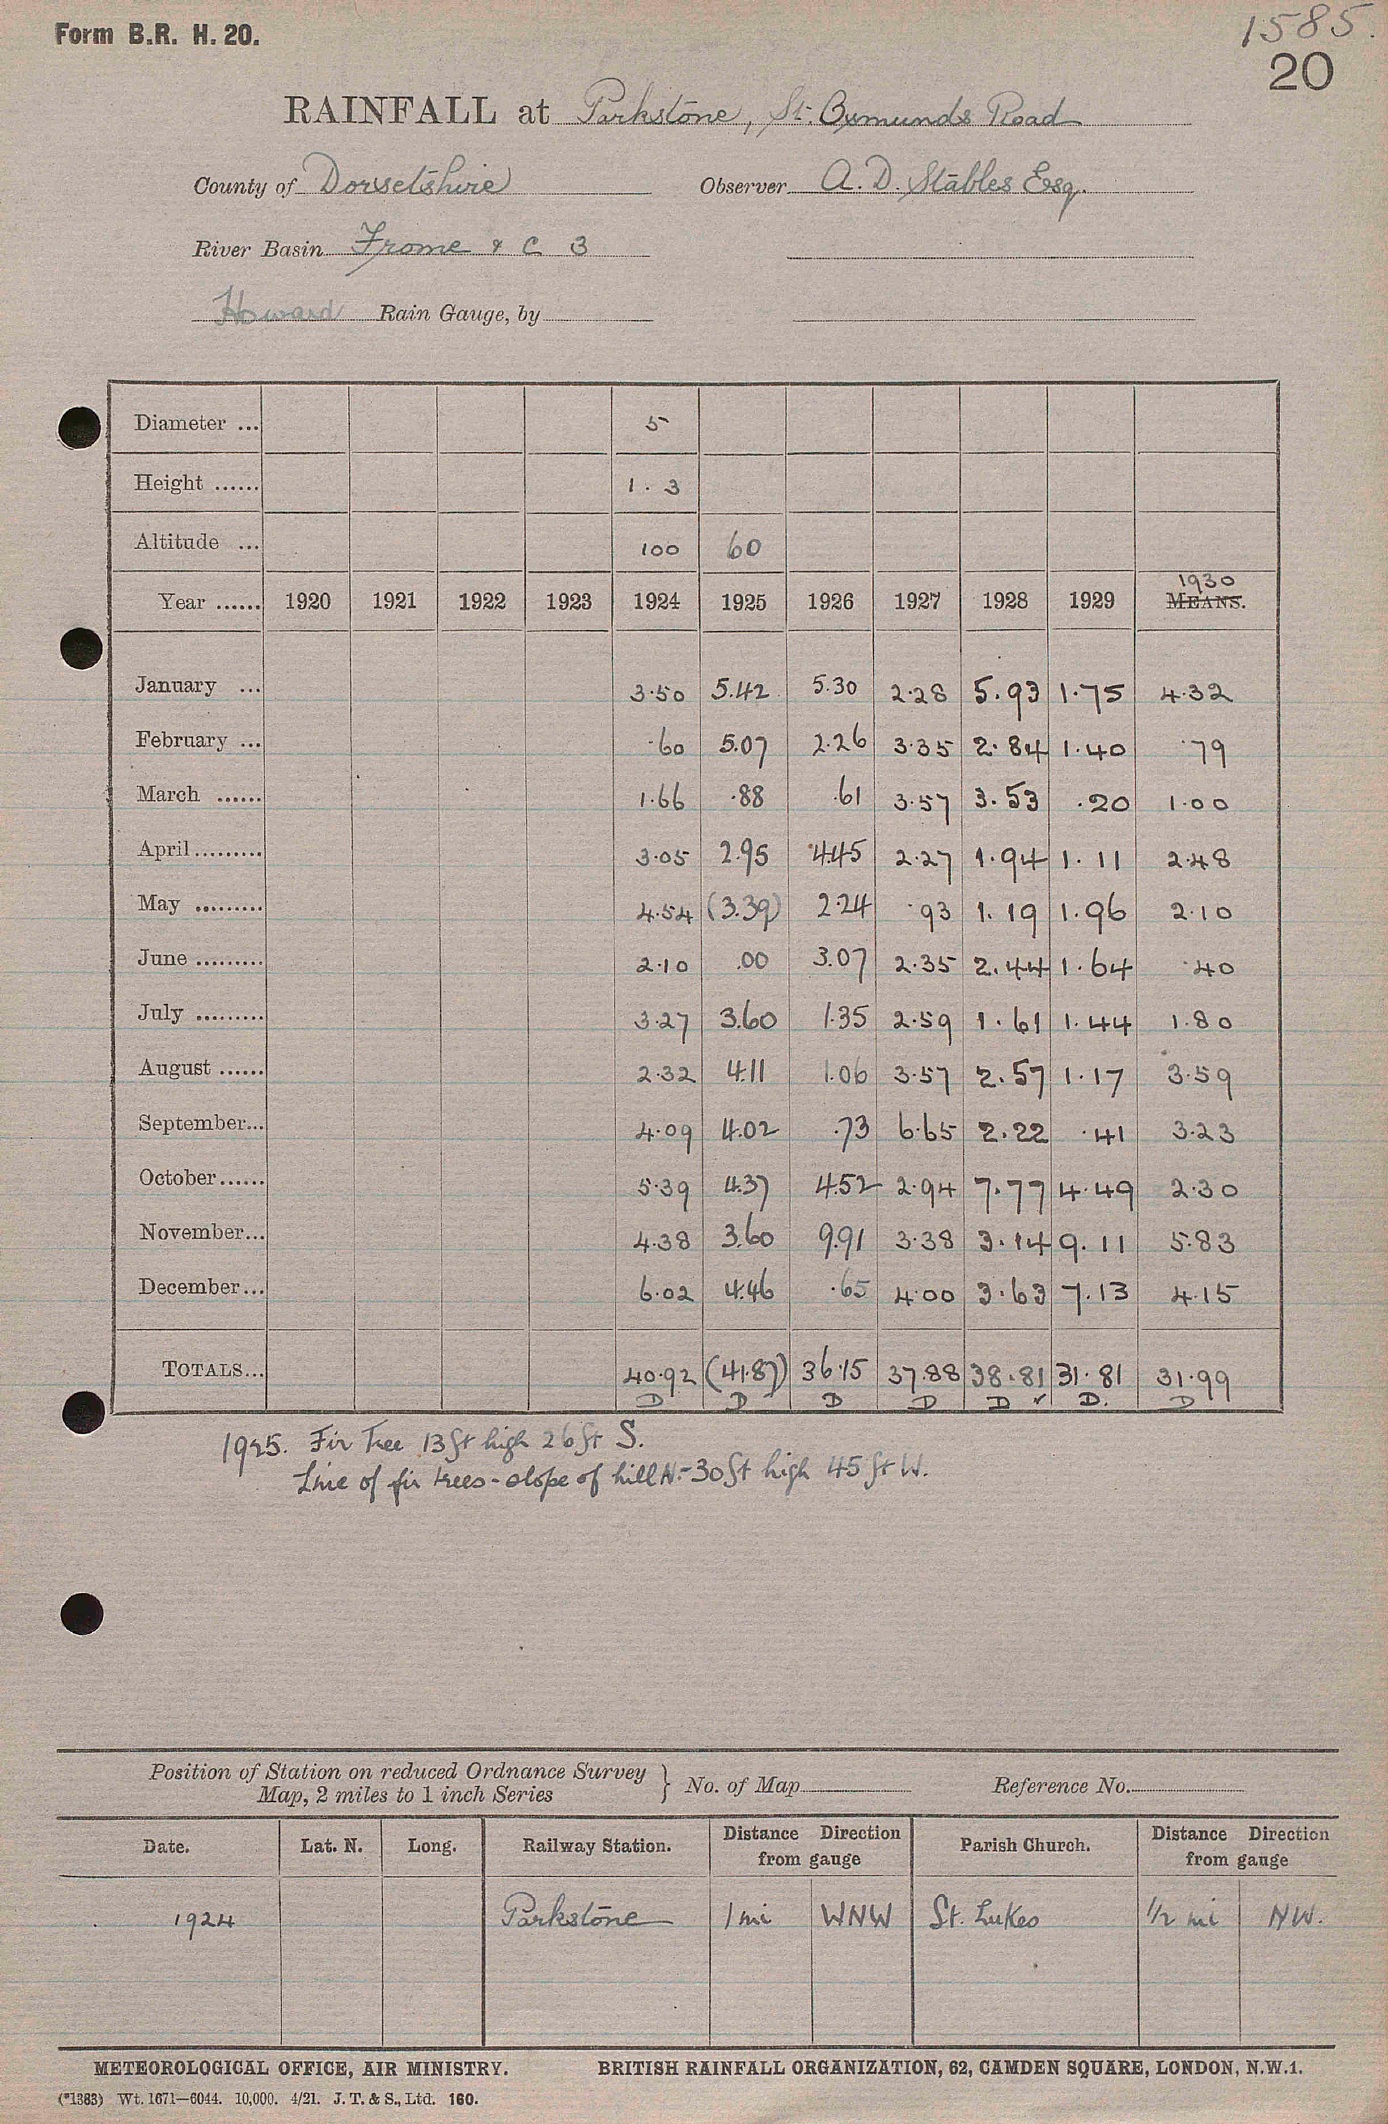 Form B.R. H. 20.
1585.
20
RAINFALL at Parkstone, St. Osmunds Road
County of Dorsetshire Observer A. D. Stables Esq.
River Basin Frome & C 3
Howard Rain Gauge, by
Diameter ... 5
Height ...... 1.3
Altitude ... 100 60
1930
Year ...... 1920 1921 1922 1923 1924 1925 1926 1927 1928 1929 MEANS.
January ... 3.50 5.42 5.30 2.28 5.93 1.75 4.32
February ... .60 5.07 2.26 3.35 2.84 1.40 .79
March ...... 1.66 .88 .61 3.57 3.53 .20 1.00
April......... 3.05 2.95 4.45 2.27 1.94 1.11 2.48
May ......... 4.54 (3.39) 2.24 .93 1.19 1.96 2.10
June ......... 2.10 .00 3.07 2.35 2.44 1.64 .40
July ......... 3.27 3.60 1.35 2.59 1.61 1.44 1.80
August ...... 2.32 4.11 1.06 3.57 2.57 1.17 3.59
September... 4.09 4.02 .73 6.65 2.22 .41 3.23
October...... 5.39 4.37 4.52 2.94 7.77 4.49 2.30
November... 4.38 3.60 9.91 3.38 3.14 9.11 5.83
December... 6.02 4.46 .65 4.00 3.63 7.13 4.15
TOTALS... 40.92 (41.87) 36.15 37.88 38.81 31.81 31.99
D D D D D ✓ D. D
1925. Fir Tree 13ft high 26ft S.
Line of fir trees - slope of hill N. - 30ft high 45ft W.
Position of Station on reduced Ordnance Survey
Map, 2 miles to 1 inch Series } No. of Map Reference No.
Date. Lat. N. Long. Railway Station. Distance Direction from gauge Parish Church. Distance Direction from gauge
1924 Parkstone 1 mi WNW St. Lukes 1/2 mi NW.
METEOROLOGICAL OFFICE, AIR MINISTRY. BRITISH RAINFALL ORGANIZATION, 62, CAMDEN SQUARE, LONDON, N.W.1.
(*1383) Wt. 1671—6044. 10,000. 4/21. J. T. & S., Ltd. 160.